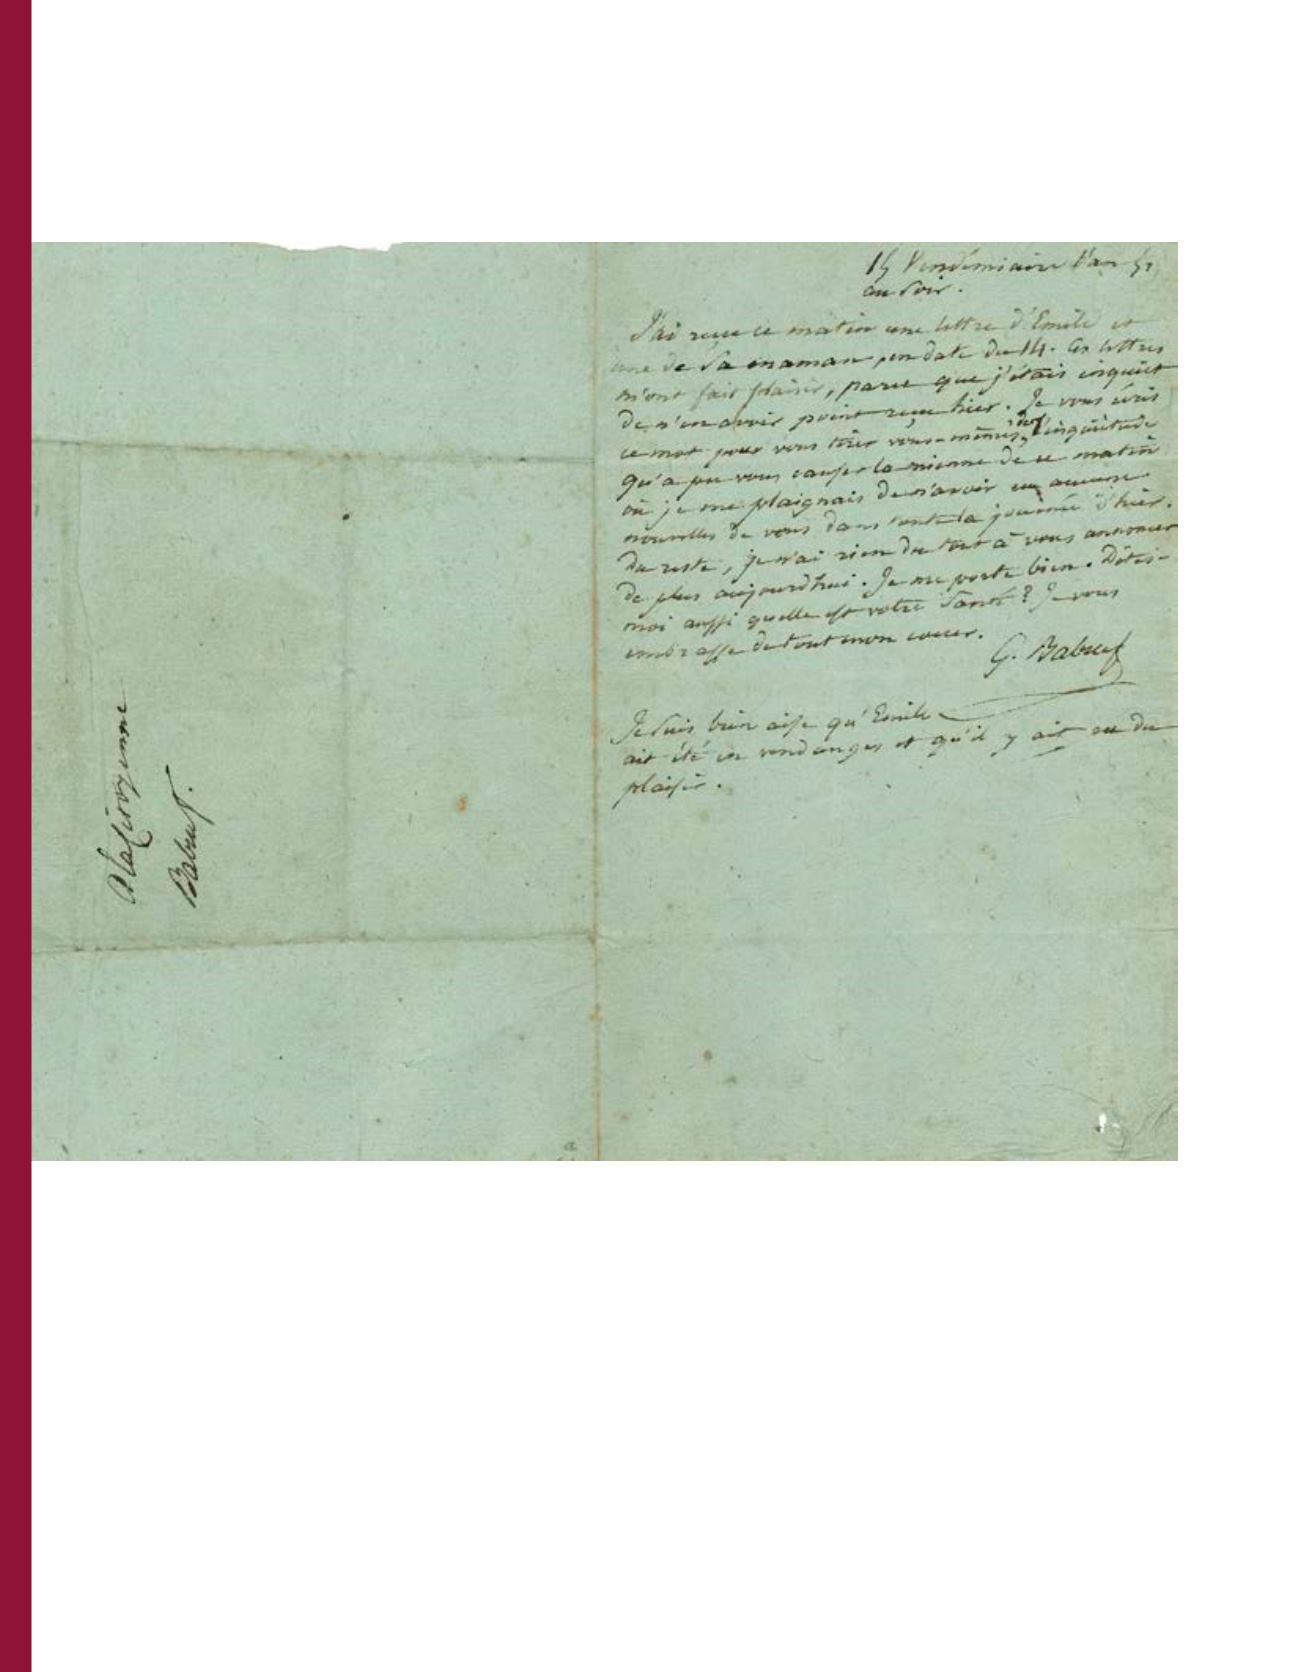 A la Citoyenne
Babeuf.
15 Vendémiaire l'an 5
au Soir.
J'ai reçu ce matin une lettre d'Emile et
une de Sa maman, en date du 14. Ces lettres
m'ont fait plaisir, parce que j'étais inquiet
de n'en avoir point reçu hier. Je vous écris
ce mot pour vous tirer vous-mêmes de l'inquiétude
qu'a pu vous causer la mienne de ce matin
où je me plaignais de n'avoir eu aucune
nouvelles de vous dans toute la journée d'hier.
du reste, je n'ai rien du tout à vous annoncer
de plus aujourd'hui. Je me porte bien. Dites-
moi aussi quelle est votre Santé? Je vous
embrasse de tout mon coeur.
G. Babeuf
Je Suis bien aise qu'Emile
ait été en vendanges et qu'il y ait eu du
plaisir.